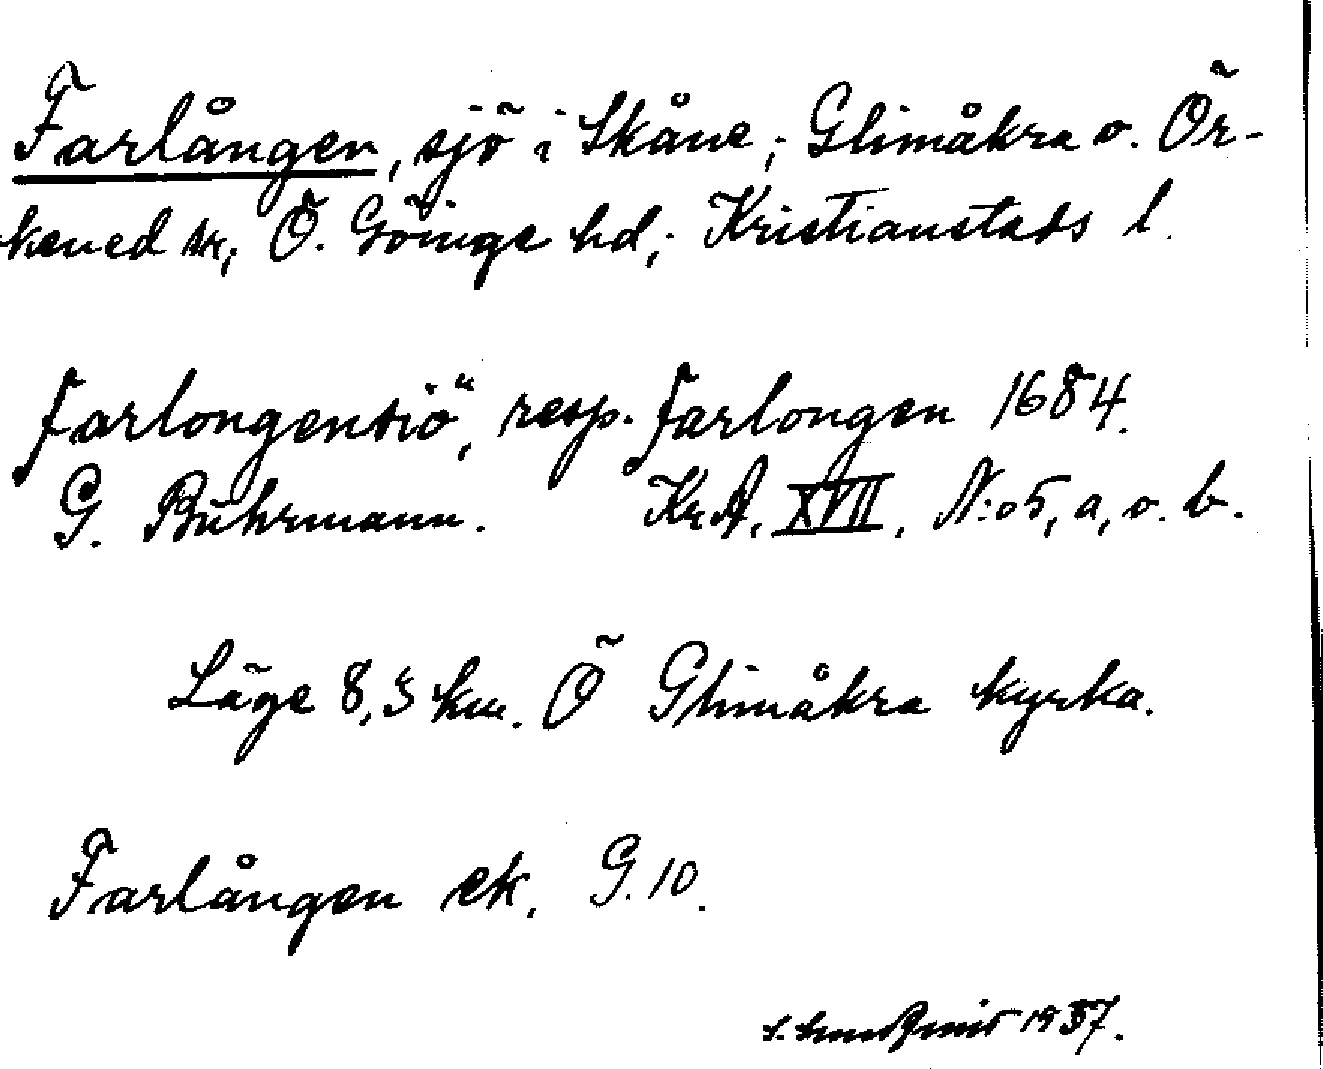 Farlången, sjö i Skåne; Glimåkra o. Ör-
kened sn, Ö. Göinge hd; Kristianstads l.
farlongensiö", resp. farlongen 1684.
G. Buhrmann. KrA, XVII, N:o 5, a, o. b.
Läge 8,3 km. Ö Glimåkra kyrka.
Farlången ek. G. 10.
1937.